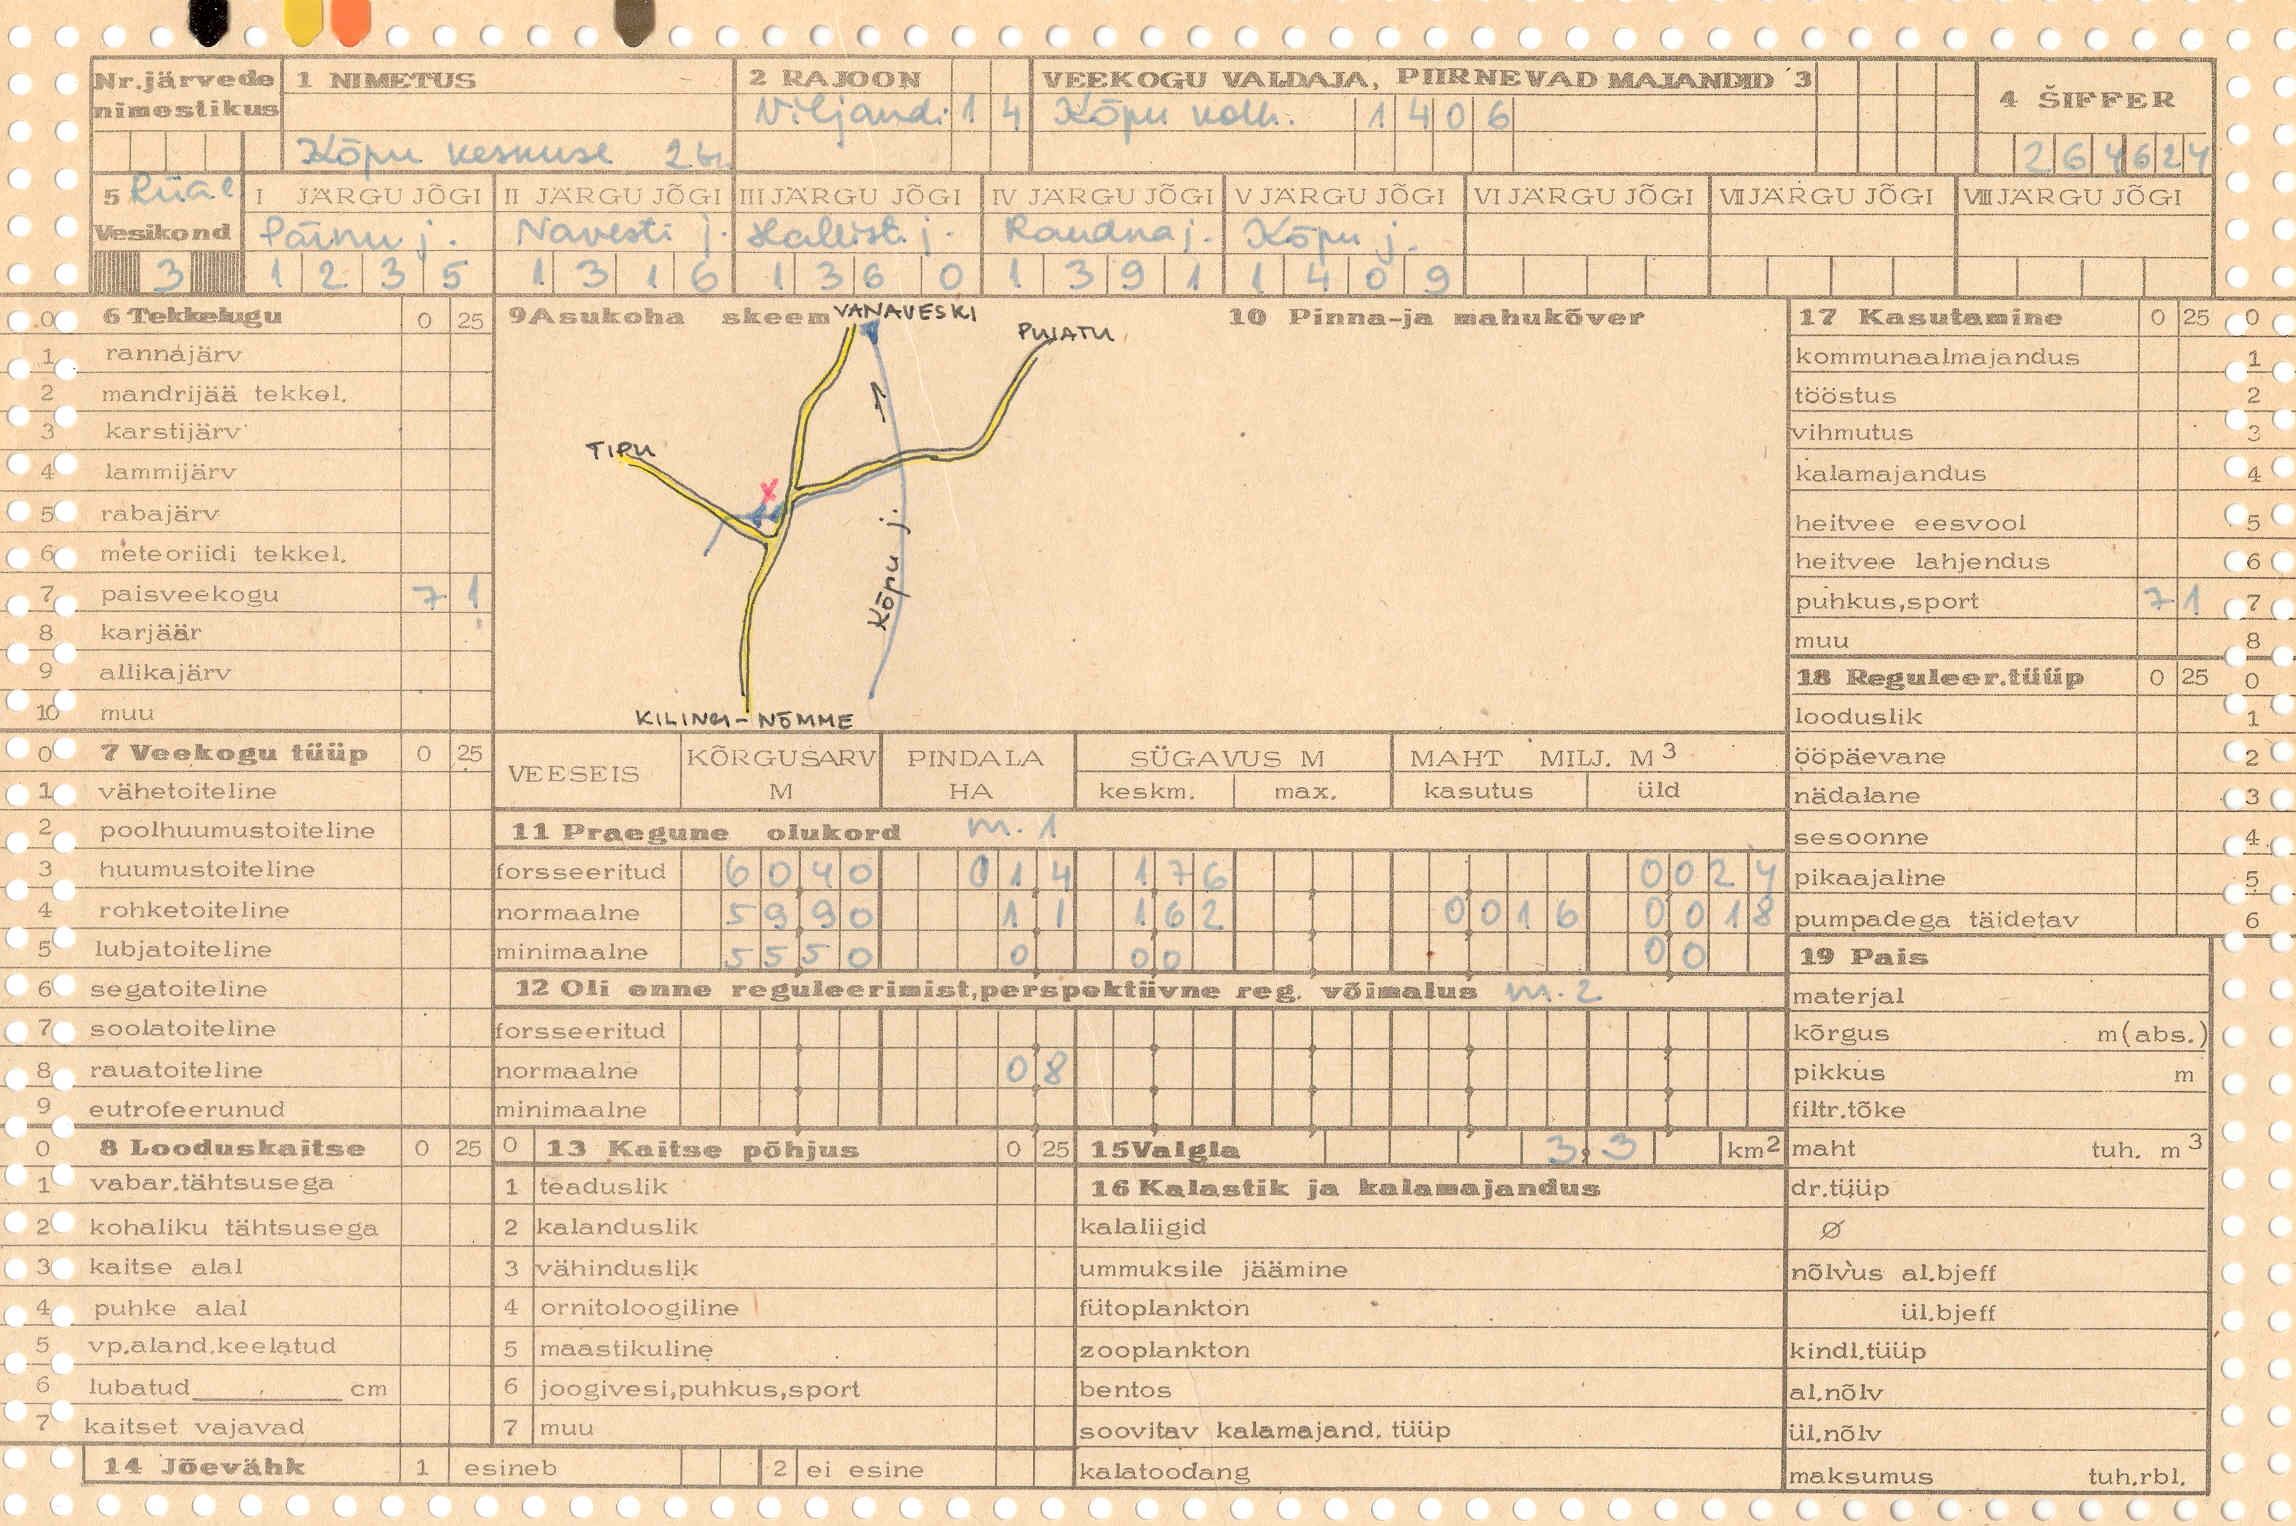 Nr.järvede nimestikus
1 NIMETUS
Kõpu keskuse
2 RAJOON
Viljandi 1 4
VEEKOGU VALDAJA, PIIRNEVAD MAJANDID 3
Kõpu kolh. 1 4 0 6
4 ŠIFFER
2 6 4 6 2 4
5
Vesikond
3
I JÄRGU JÕGI
Pärnu j.
1 2 3 5
II JÄRGU JÕGI
Navesti j.
1 3 1 6
III JÄRGU JÕGI
Hallisti j.
1 3 6 0
IV JÄRGU JÕGI
Raudna j.
1 3 9 1
V JÄRGU JÕGI
Kõpu j.
1 4 0 9
VI JÄRGU JÕGI
VII JÄRGU JÕGI
VIII JÄRGU JÕGI
0 6 Tekkelugu 0 25
1 rannajärv
2 mandrijää tekkel.
3 karstijärv
4 lammijärv
5 rabajärv
6 meteoriidi tekkel.
7 paisveekogu 7 1
8 karjäär
9 allikajärv
10 muu
0 7 Veekogu tüüp 0 25
1 vähetoiteline
2 poolhuumustoiteline
3 huumustoiteline
4 rohketoiteline
5 lubjatoiteline
6 segatoiteline
7 soolatoiteline
8 rauatoiteline
9 eutrofeerunud
0 8 Looduskaitse 0 25
1 vabar.tähtsusega
2 kohaliku tähtsusega
3 kaitse alal
4 puhke alal
5 vp.aland.keelatud
6 lubatud cm
7 kaitset vajavad
14 Jõevähk 1 esineb 2 ei esine
9 Asukoha skeem
VANAVESKI
PUIATU
TIPU
X
Kõpu j.
KILINGI-NÕMME
10 Pinna-ja mahukõver
VEESEIS KÕRGUSARV M PINDALA HA SÜGAVUS M keskm. max. MAHT MILJ. M3 kasutus üld
11 Praegune olukord m. 1
forsseeritud 6 0 4 0 0 1 4 1 7 6 0 0 2 4
normaalne 5 9 9 0 1 1 1 6 2 0 0 1 6 0 0 1 8
minimaalne 5 5 5 0 0 0 0 0 0
12 Oli enne reguleerimist,perspektiivne reg. võimalus m. 2
forsseeritud
normaalne 0 8
minimaalne
0 13 Kaitse põhjus 0 25
1 teaduslik
2 kalanduslik
3 vähinduslik
4 ornitoloogiline
5 maastikuline
6 joogivesi,puhkus,sport
7 muu
15 Valgla 3,3 km2
16 Kalastik ja kalamajandus
kalaliigid
ummuksile jäämine
fütoplankton
zooplankton
bentos
soovitav kalamajand. tüüp
kalatoodang
17 Kasutamine 0 25 0
kommunaalmajandus 1
tööstus 2
vihmutus 3
kalamajandus 4
heitvee eesvool 5
heitvee lahjendus 6
puhkus,sport 7 1 7
muu 8
18 Reguleer.tüüp 0 25 0
looduslik 1
ööpäevane 2
nädalane 3
sesoonne 4
pikaajaline 5
pumpadega täidetav 6
19 Pais
materjal
kõrgus m(abs.)
pikkus m
filtr.tõke
maht tuh. m3
dr.tüüp
Ø
nõlvus al.bjeff
ül.bjeff
kindl.tüüp
al.nõlv
ül.nõlv
maksumus tuh.rbl.